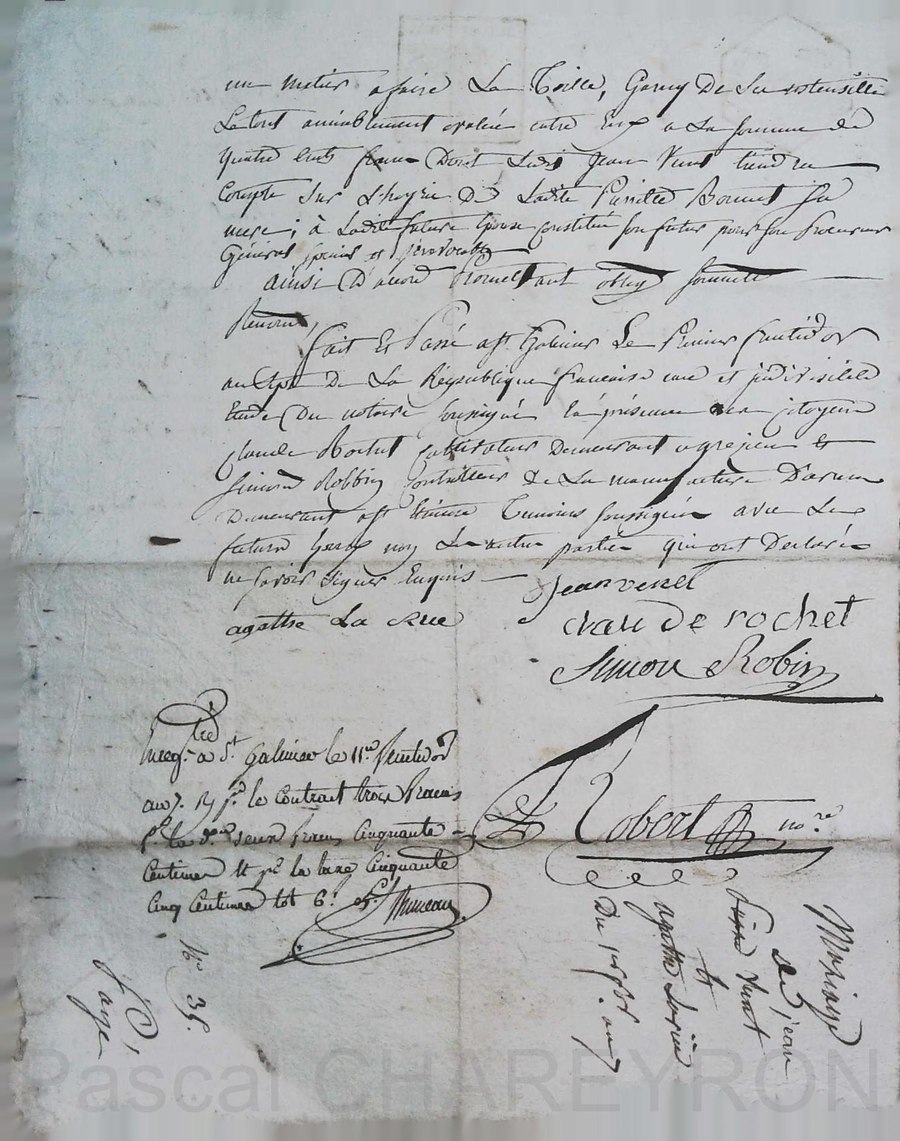 un metier a faire La Toille, Garny De Ses ustensille
Le tout amiablement evalué entre Eux a La somme de
quatre cents francs Dont Ledit Jean Venet tiendra
Compte sur L'hoyrie De Ladite Bonnet sa
mere; à Ladite future Epouse constitué son futur pour son Procureur
Général special et irrevocable
ainsi D'acord Promettant oblig soumett
Renonc,
fait Et Passé a st Galmier Le Premier
an sept De La République francaise une et indivisible
Etude Du notaire soussigné En présence des citoyens
Claude Rochet cultivateur Demeurant a et
Simon Robbin Controlleur De La manufacture D'armes
Demeurant a st Etienne Temoins soussignés avec Le
futur non Les autres parties qui ont Declarés
ne savoir signer Enquis
agathe La
Jean venet
claude rochet
Simon Robin
Enregtré a St. Galmier le 11e. Vend
an 7. R pr. le Contrat trois francs
pr. la deux francs Cinquante
Centimes et pr. la taxe Cinquante
Cinq Centimes tot 6f. 5c.
Robert nore
Mariage
de jean
Venet
et
agathe
Du 1er an 7
No 35.
Pascal CHAREYRON